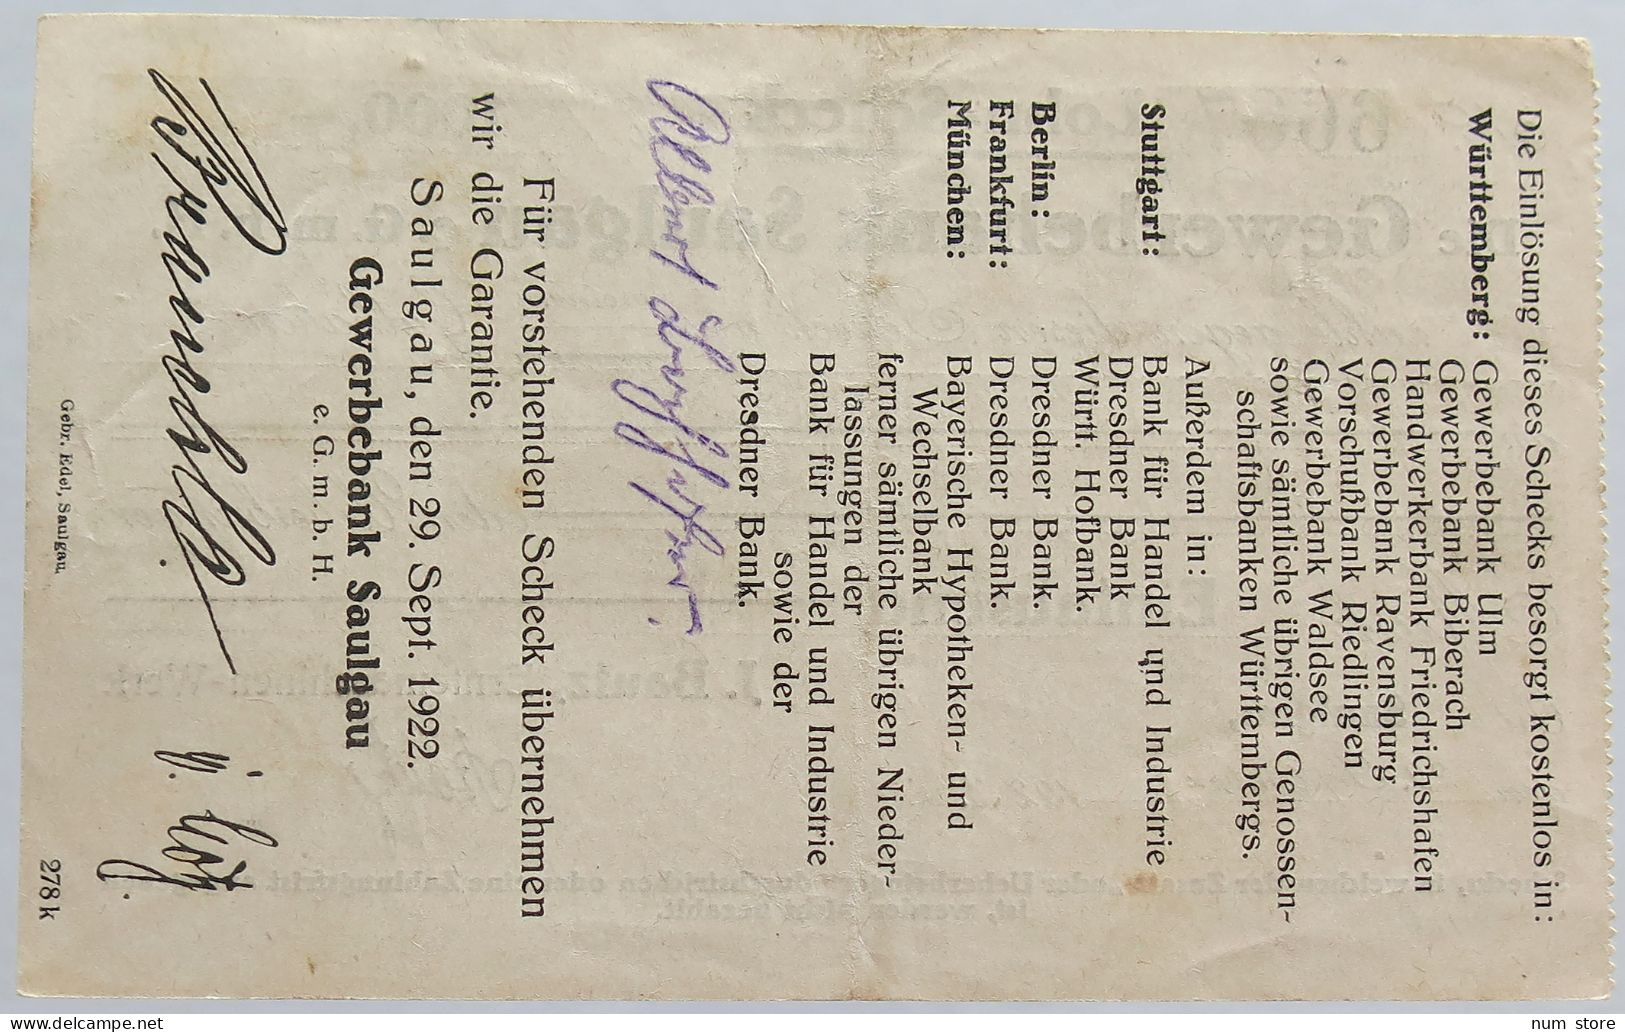 Die Einlösung dieses Schecks besorgt kostenlos in:
Württemberg: Gewerbebank Ulm
Gewerbebank Biberach
Handwerkerbank Friedrichshafen
Gewerbebank Ravensburg
Vorschußbank Riedlingen
Gewerbebank Waldsee
sowie sämtliche übrigen Genossen-
schaftsbanken Württembergs.
Außerdem in:
Stuttgart: Bank für Handel und Industrie
Dresdner Bank
Württ. Hofbank.
Berlin: Dresdner Bank.
Frankfurt: Dresdner Bank.
München: Bayerische Hypotheken- und
Wechselbank
ferner sämtliche übrigen Nieder-
lassungen der
Bank für Handel und Industrie
sowie der
Dresdner Bank.
Für vorstehenden Scheck übernehmen
wir die Garantie.
Saulgau, den 29. Sept. 1922.
Gewerbebank Saulgau
e. G. m. b. H.
Gebr. Edel, Saulgau.
278k
num store